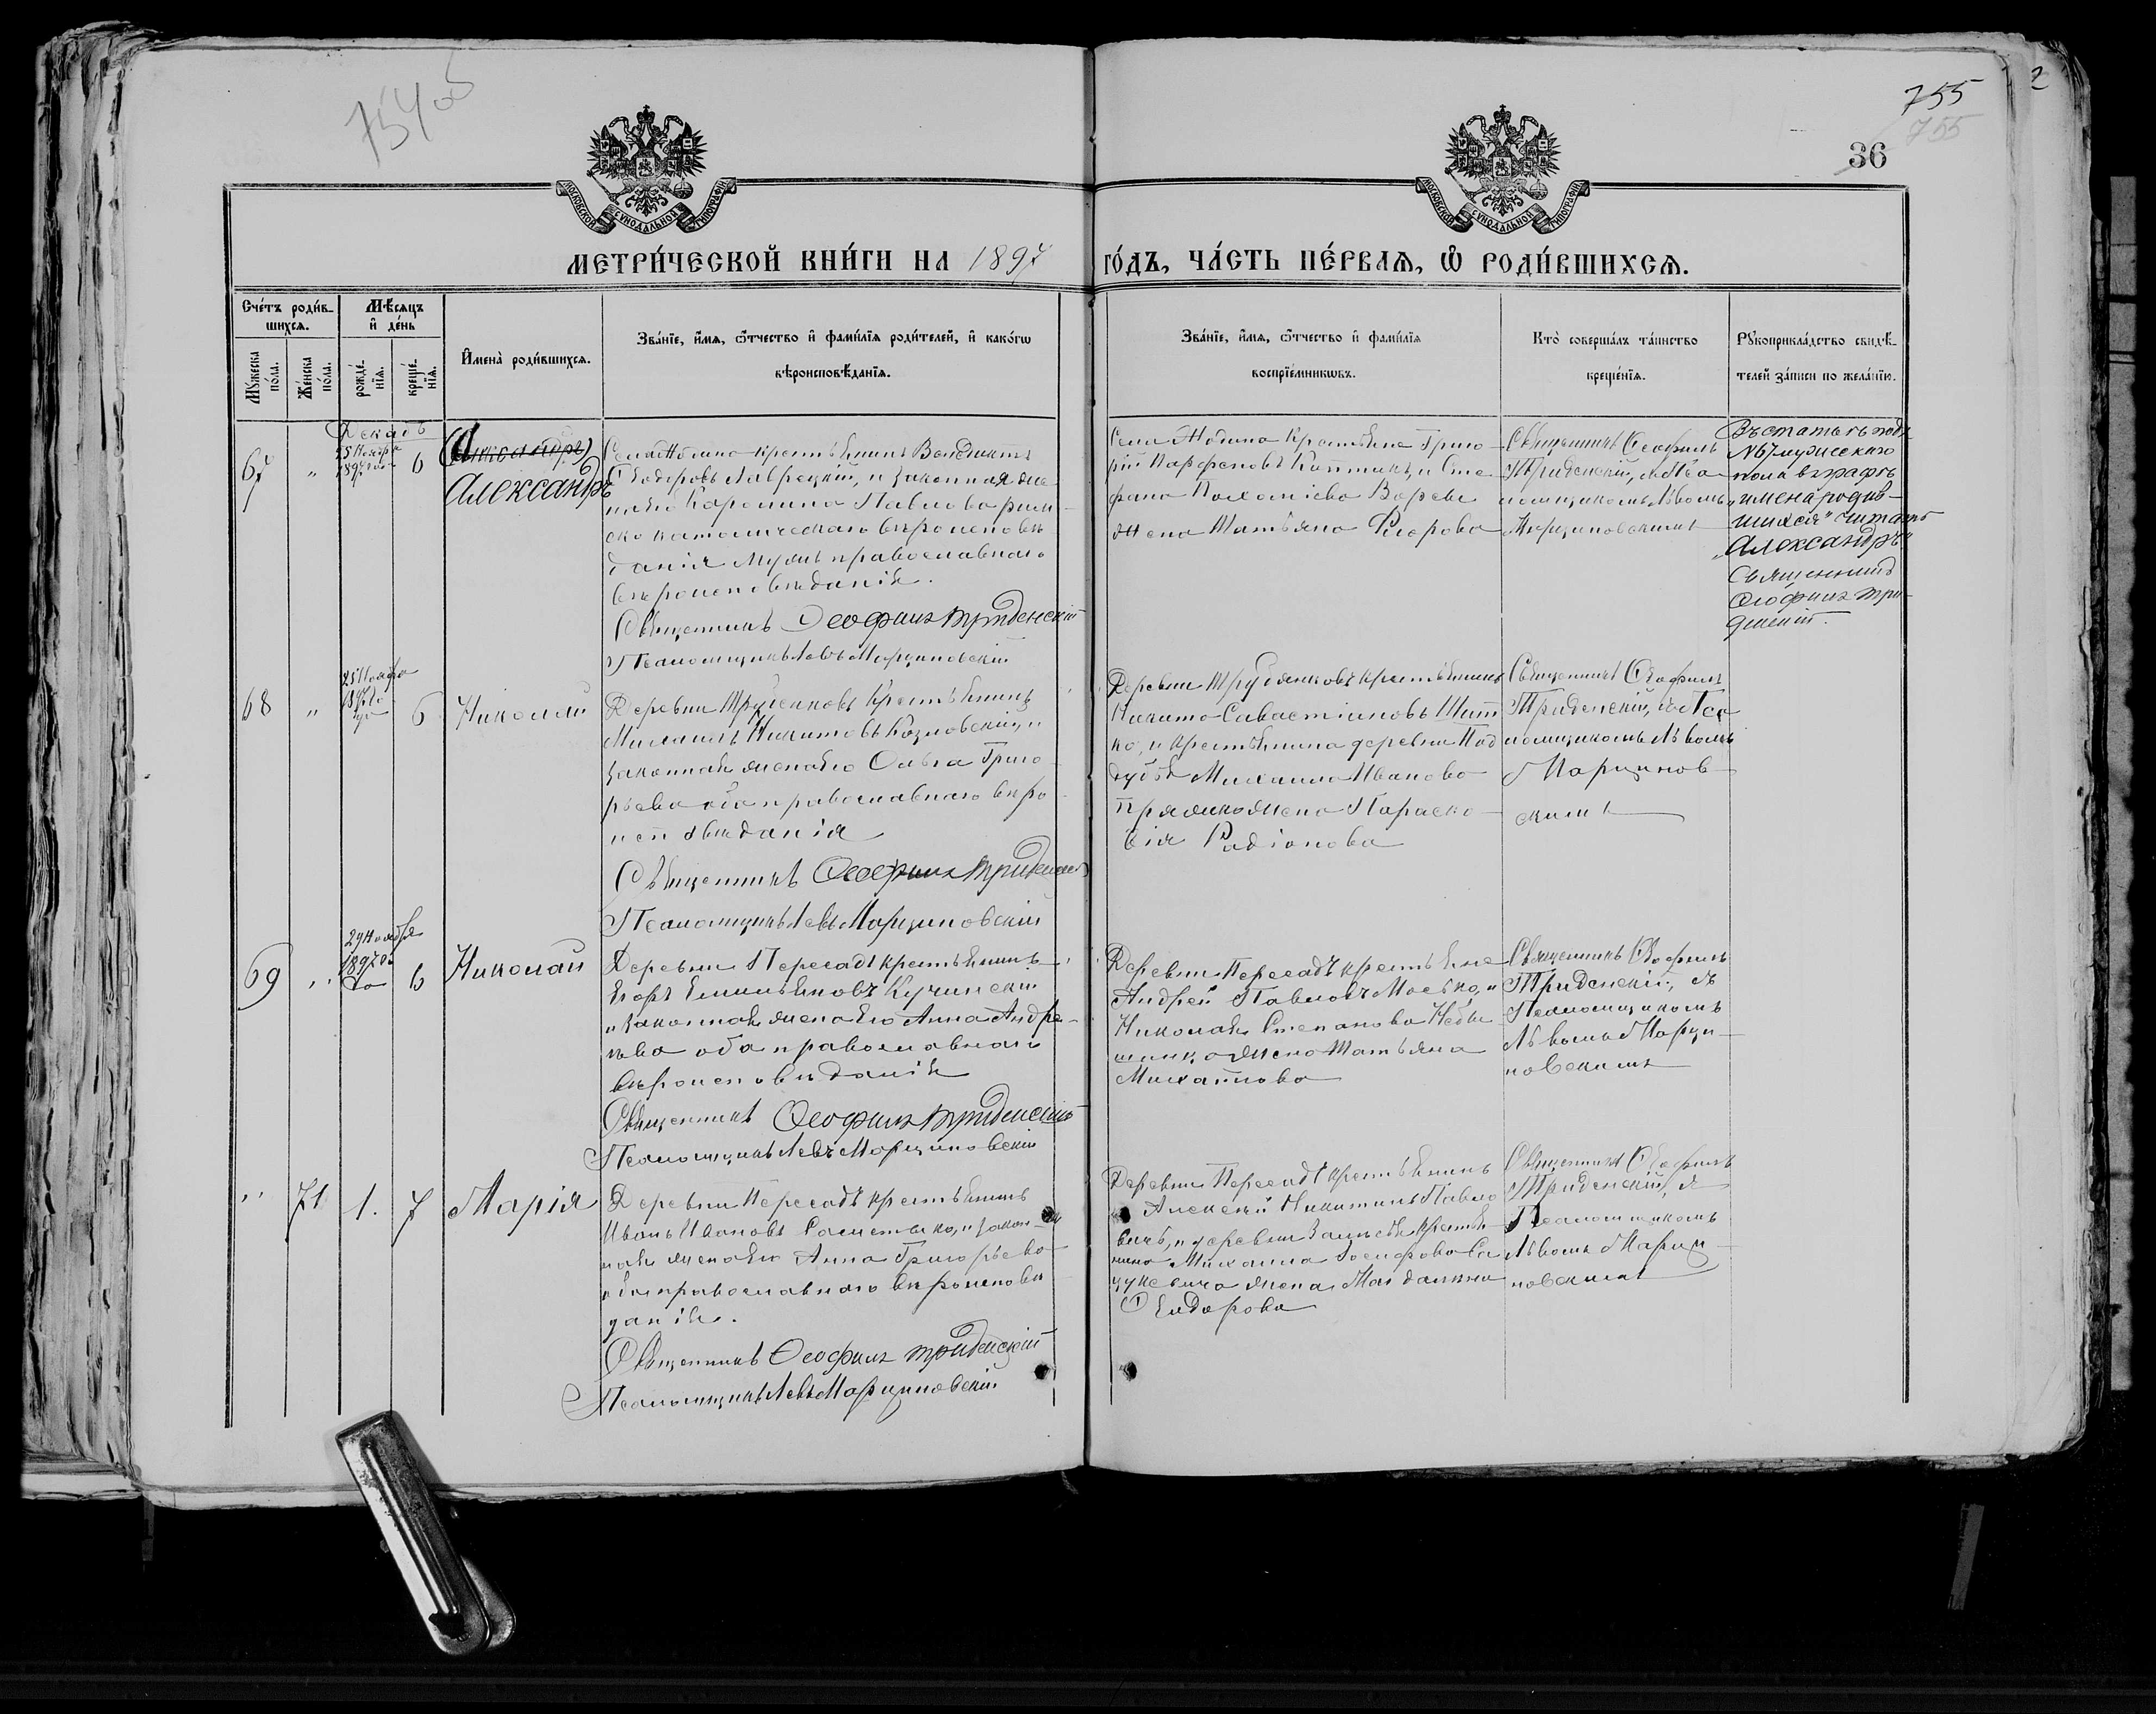 754 об
755
755
36
2
МОСКОВСКОЙ СѴНОДАЛЬНОЙ ТИПОГРАФІИ
МОСКОВСКОЙ СѴНОДАЛЬНОЙ ТИПОГРАФІИ
МЕТРИ́ЧЕСКОЙ КНИ́ГИ НА 1897
ГО́ДЪ, ЧА́СТЬ ПЕ́РВАЯ, Ѡ РОДИ́ВШИХСЯ.
Сче́тъ роди́в-
шихся.
Мꙋ́жеска по́ла.
Же́нска по́ла.
Мѣ́сяцъ и де́нь
рожде́-нїя.
креще́-нїя.
И҆мена̀ роди́вшихся.
Зва́нїе, и҆́мя, ѻ҆́тчество и҆ фами́лїя роди́телей, и҆ како́гѡ
вѣроисповѣ́данїя.
Зва́нїе, и҆́мя, ѻ҆́тчество и҆ фами́лїя
воспрїе́мникѡвъ.
Кто̀ соверша́лъ та́инство
креще́нїя.
Рꙋкоприкла́дство свидѣ́-
телей за́писи по жела́нїю.
Декабъ
67
"
25 Ноября
1897 го
6
(Александръ)
Александръ
крестьянинъ
Ѳеодоровъ Лаврецкій, и законная же
на его Каролина Павлова рим-
ско католическаго вѣроисповѣ
данія мужъ православнаго
вѣроисповѣданія.
Священникъ Ѳеофилъ Триденскій
Псаломщикъ Левъ Марциновскій
крестьянинъ Григо-
рій Парфеновъ и Сте
фана
жена Татьяна
Священникъ Ѳеофилъ
Триденскій, съ Пса
ломщикомъ Львомъ
Марциновскимъ
Въ статьѣ подъ
№67 мужескаго
пола въ графѣ
"имена родив-
шихся" читать
"Александръ"
Священникъ
Ѳеофилъ Три-
денскій.
68
"
25 Ноября
1897 го
года
6
Николай
Деревни крестьянинъ
Михаилъ Никитовъ Козловскій, и
законная жена его Ольга Григо-
рьева оба православнаго вѣро
исповѣданія
Священникъ Ѳеофилъ Триденскій
Псаломщикъ Левъ Марциновскій
Деревни крестьянинъ
Никита Савастіановъ Шит
ко, и крестьянина деревни Под
Михаила Иванова
жена Параске-
вія Радіонова
Священникъ Ѳеофилъ
Триденскій, съ Пса
ломщикомъ Львомъ
Марцинов-
скимъ
69
"
29 Ноября
1897 го
6
Николай
Деревни Пересадъ крестьянинъ
Егоръ Емильяновъ Кучинскій
и законная жена его Анна Андре-
ева оба православнаго
вѣроисповѣданія
Священникъ Ѳеофилъ Триденскій
Псаломщикъ Левъ Марциновскій
Деревни Пересадъ крестьяне
Андрей Павловъ и
Николая Степанова
жена Татьяна
Михайлова
Священникъ Ѳеофилъ
Триденскій, съ
Псаломщикомъ
Львомъ Марци-
новскимъ
"
71
1.
7
Марія
Деревни Пересадъ крестьянинъ
Иванъ Ивановъ и закон-
ная жена его Анна Григорьева
оба православнаго вѣроисповѣ
данія.
Священникъ Ѳеофилъ Триденскій
Псаломщикъ Левъ Марциновскій
Деревни Пересадъ крестьянинъ
Алексѣй Никитинъ Павло
вичъ, и деревни крестья-
нина Михаила Іосифова
жена Магдалина
Ѳеодорова
Священникъ Ѳеофилъ
Триденскій, съ
Псаломщикомъ
Львомъ Марци-
новскимъ